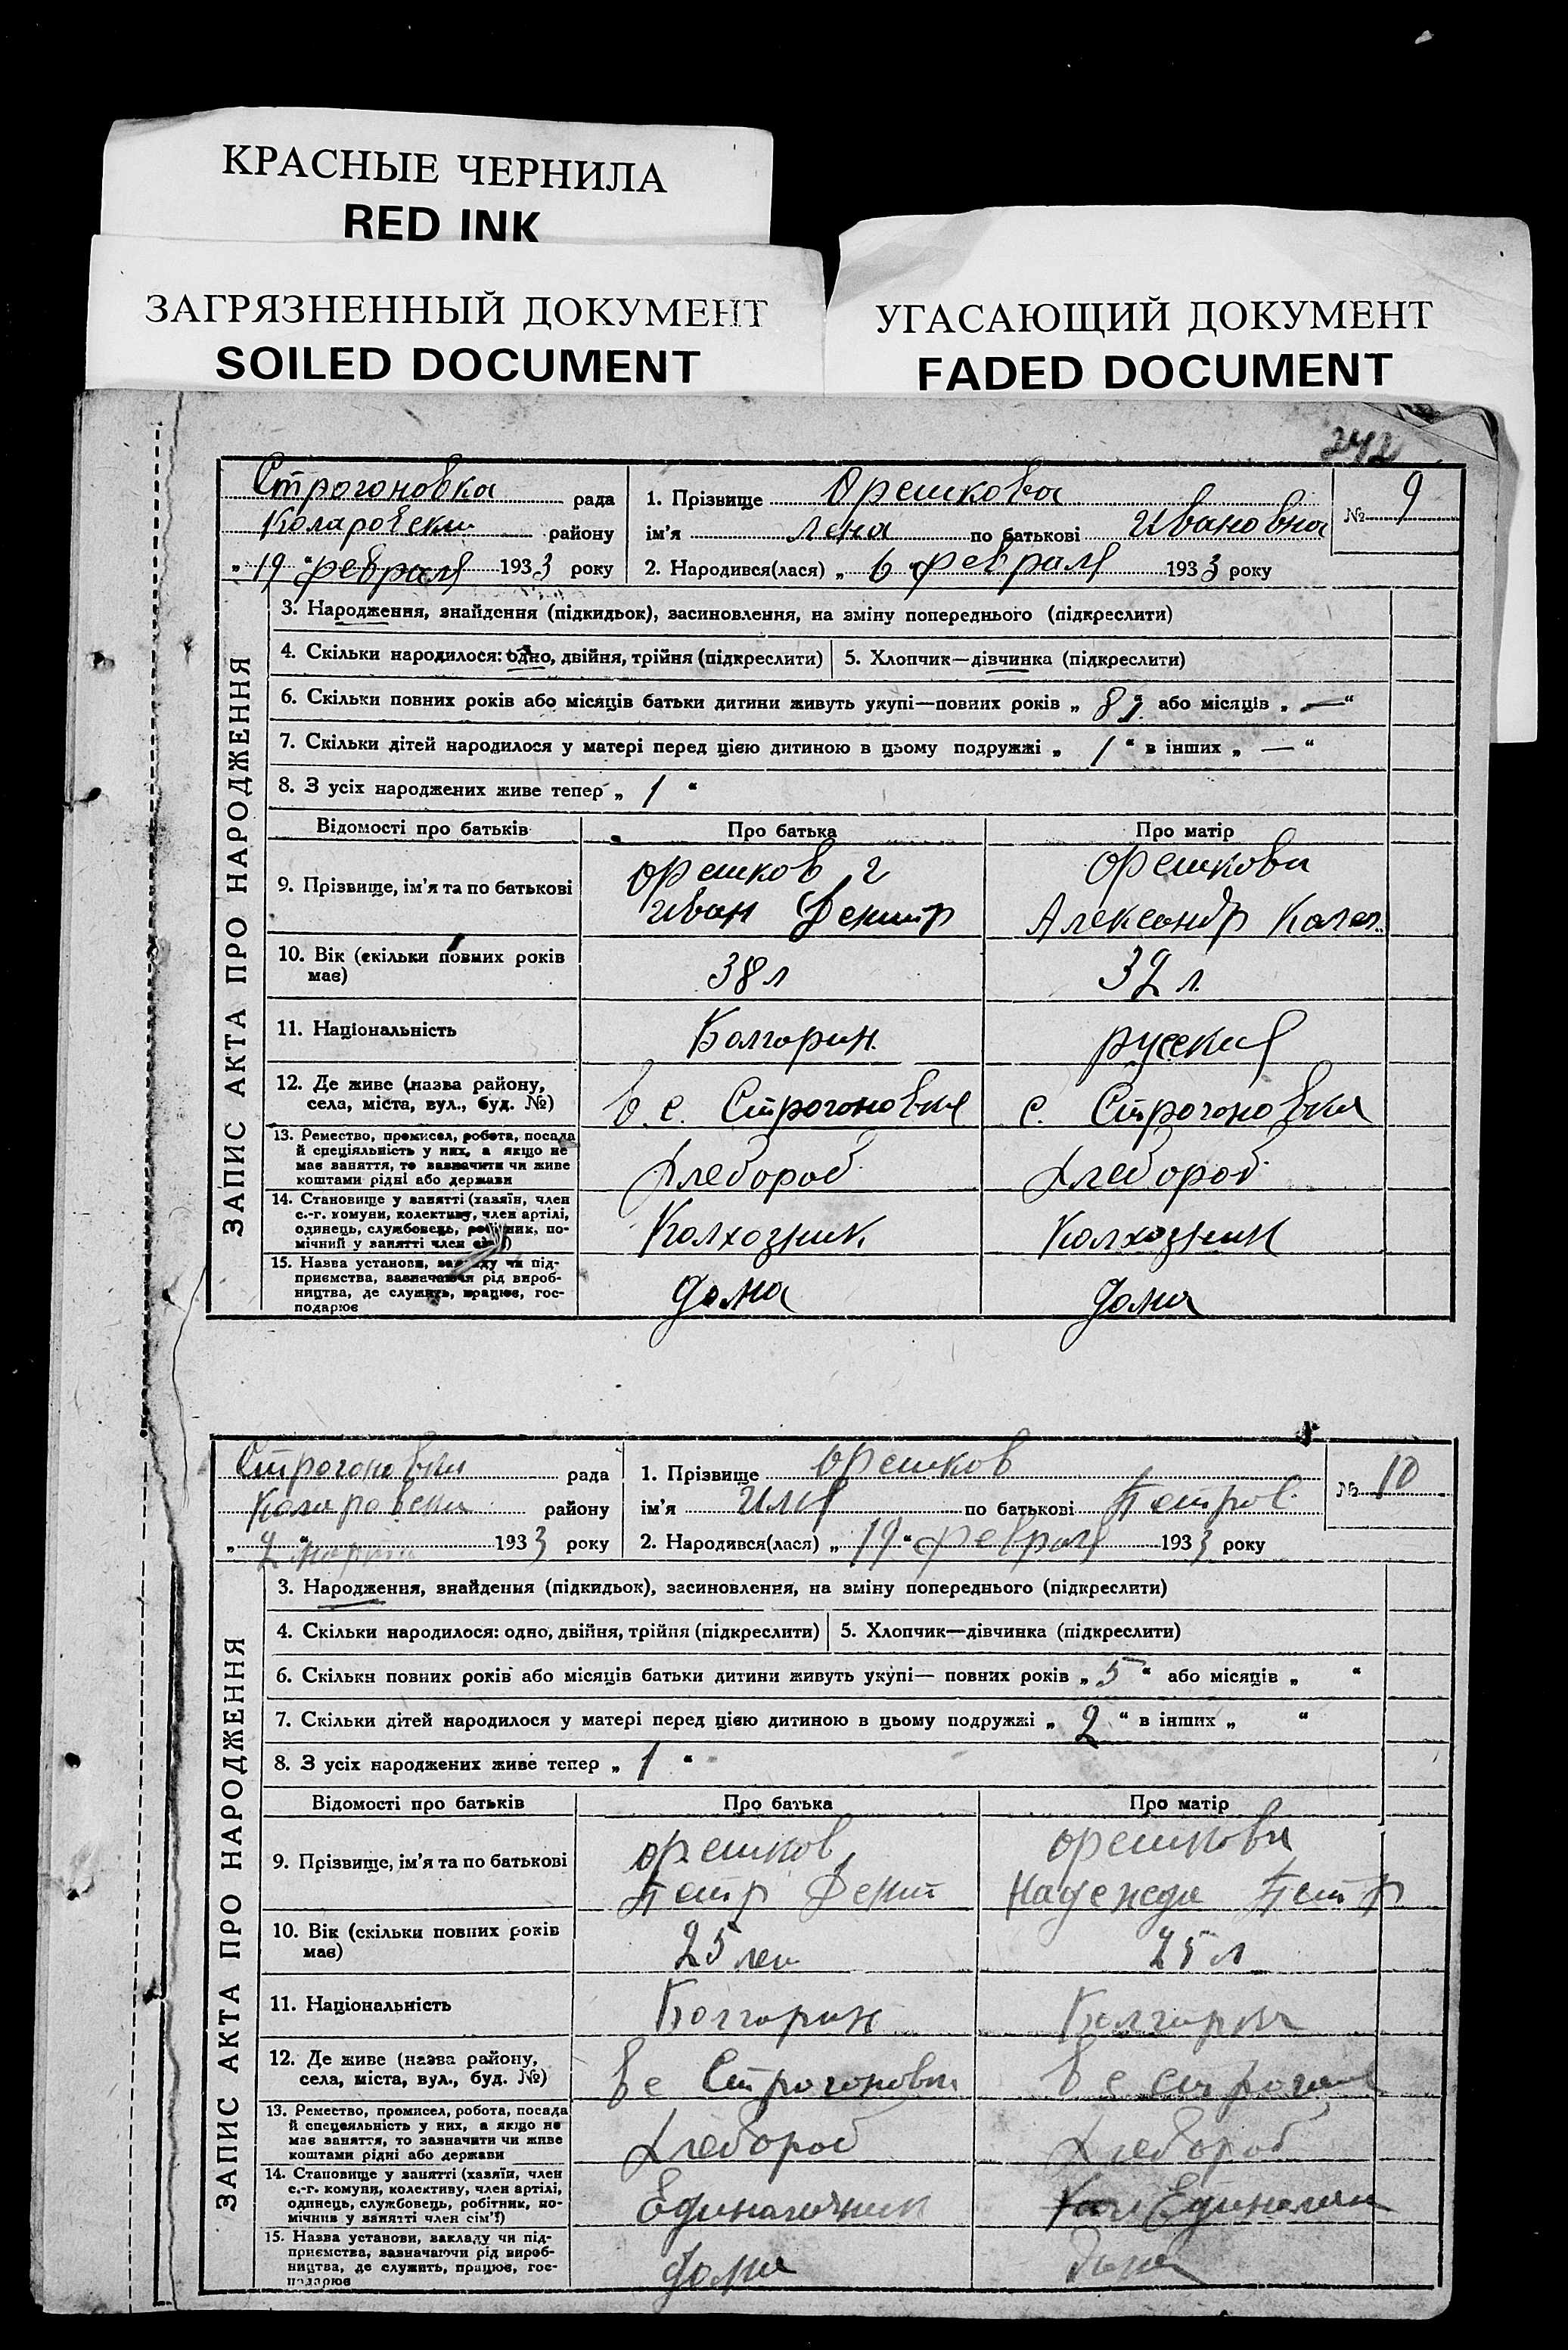 КРАСНЫЕ ЧЕРНИЛА
RED INK
ЗАГРЯЗНЕННЫЙ ДОКУМЕНТ
SOILED DOCUMENT
УГАСАЮЩИЙ ДОКУМЕНТ
FADED DOCUMENT
242
Строгоновка рада
Коларовски району
„19“ февраля 1933 року
1. Прізвище Орешкова
ім'я Лена по батькові Ивановна
2. Народився(лася) „6“ февраля 1933 року
№ 9
ЗАПИС АКТА ПРО НАРОДЖЕННЯ
3. Народження, знайдення (підкидьок), засиновлення, на зміну попереднього (підкреслити)
4. Скільки народилося: одно, двійня, трійня (підкреслити)
5. Хлопчик—дівчинка (підкреслити)
6. Скільки повних років або місяців батьки дитини живуть укупі—повних років „ 8 “ або місяців „ — “
7. Скільки дітей народилося у матері перед цією дитиною в цьому подружжі „ 1 “ в інших „ — “
8. З усіх народжених живе тепер „ 1 “
Відомості про батьків Про батька Про матір
9. Прізвище, ім'я та по батькові
Орешков
Иван
Орешкова
Александр
10. Вік (скільки повних років має)
38 л
32 л.
11. Національність
Болгарин.
русская
12. Де живе (назва району,
села, міста, вул., буд. №)
в с. Строгоновка
с. Строгоновка
13. Ремество, промисел, робота, посада
й спеціяльність у них, а якщо не
має заняття, то зазначити чи живе
коштами рідні або держави
Хлебороб
Хлебороб
14. Становище у занятті (хазяїн, член
с.-г. комуни, колективу, член артілі,
одинець, службовець, робітник, по-
мічний у занятті член сім'ї)
Колхозник
Колхозник
15. Назва установи, закладу чи під-
приємства, зазначаючи рід вироб-
ництва, де служить, працює, гос-
подарює
дома
дома
Строгоновка рада
Коларовски району
„2“ марта 1933 року
1. Прізвище Орешков
ім'я Илья по батькові Петров
2. Народився(лася) „19“ февраля 1933 року
№ 10
ЗАПИС АКТА ПРО НАРОДЖЕННЯ
3. Народження, знайдення (підкидьок), засиновлення, на зміну попереднього (підкреслити)
4. Скільки народилося: одно, двійня, трійня (підкреслити)
5. Хлопчик—дівчинка (підкреслити)
6. Скільки повних років або місяців батьки дитини живуть укупі— повних років „ 5 “ або місяців „ “
7. Скільки дітей народилося у матері перед цією дитиною в цьому подружжі „ 2 “ в інших „ “
8. З усіх народжених живе тепер „ 1 “
Відомості про батьків Про батька Про матір
9. Прізвище, ім'я та по батькові
Орешков
Петр
Орешкова
Надежда Петр
10. Вік (скільки повних років має)
25 лет
25 л
11. Національність
Болгарин
Болгарка
12. Де живе (назва району,
села, міста, вул., буд. №)
в с Строгоновка
в с
13. Ремество, промисел, робота, посада
й спецеяльність у них, а якщо не
має заняття, то зазначити чи живе
коштами рідні або держави
Хлебороб
Хлебороб
14. Становище у занятті (хазяїн, член
с.-г. комуни, колективу, член артілі,
одинець, службовець, робітник, по-
мічнив у занятті член сім'ї)
Единаличник
15. Назва установи, закладу чи під-
приємства, зазначаючи рід вироб-
ництва, де служить, працює, гос-
подарює
дома
дома